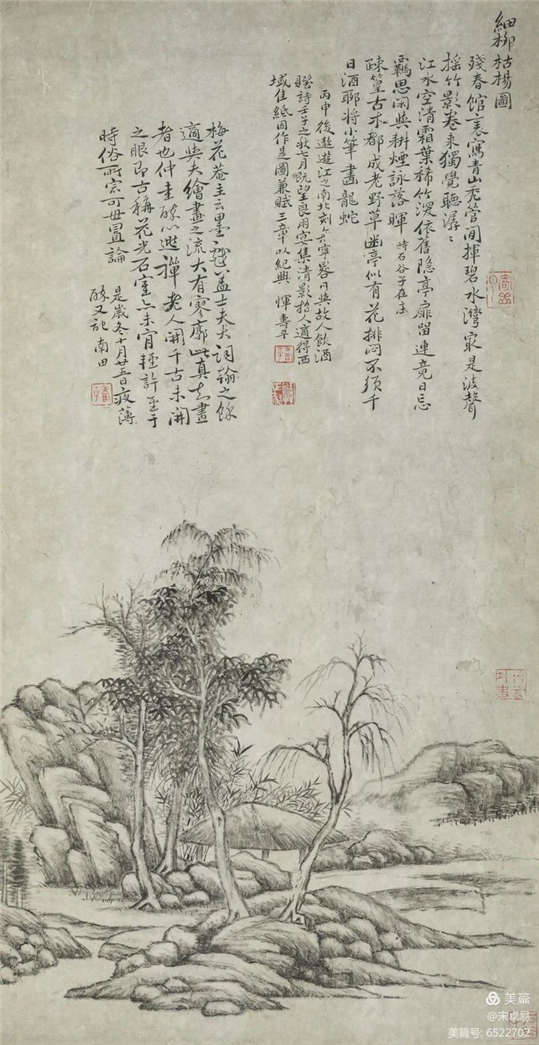 細柳枯楊圖
殘春館裏寫青山禿管間揮碧水灣最是波聲
搖竹影卷來獨覺聽潺潺
江水空清霜葉稀竹溪依舊隱亭扉留連竟日忘
羈思閑與耕煙詠落暉 時石谷子在坐
疎篁古木都成老野草幽亭似有花排悶不須千
日酒聊將小筆畫龍蛇
丙申後遨遊江之南北刻 與故人飲酒
賦詩壬子之秋七月既望 良朋宴集清影招人適得西
域佳紙因作是圖兼賦三章以紀興 惲壽平
梅花菴主云墨戲蓋士夫夫詞翰之餘
適與夫繪畫之流大有寥廓此真知畫
者也仲圭醉心逃禪老人開千古未開
之眼即古稱花光石室亦未肯輕許至于
時俗所宗可毋置論
是歲冬十月廿五日夜薄
醉又記 南田
美篇
@宋卓易
美篇号: 6522702